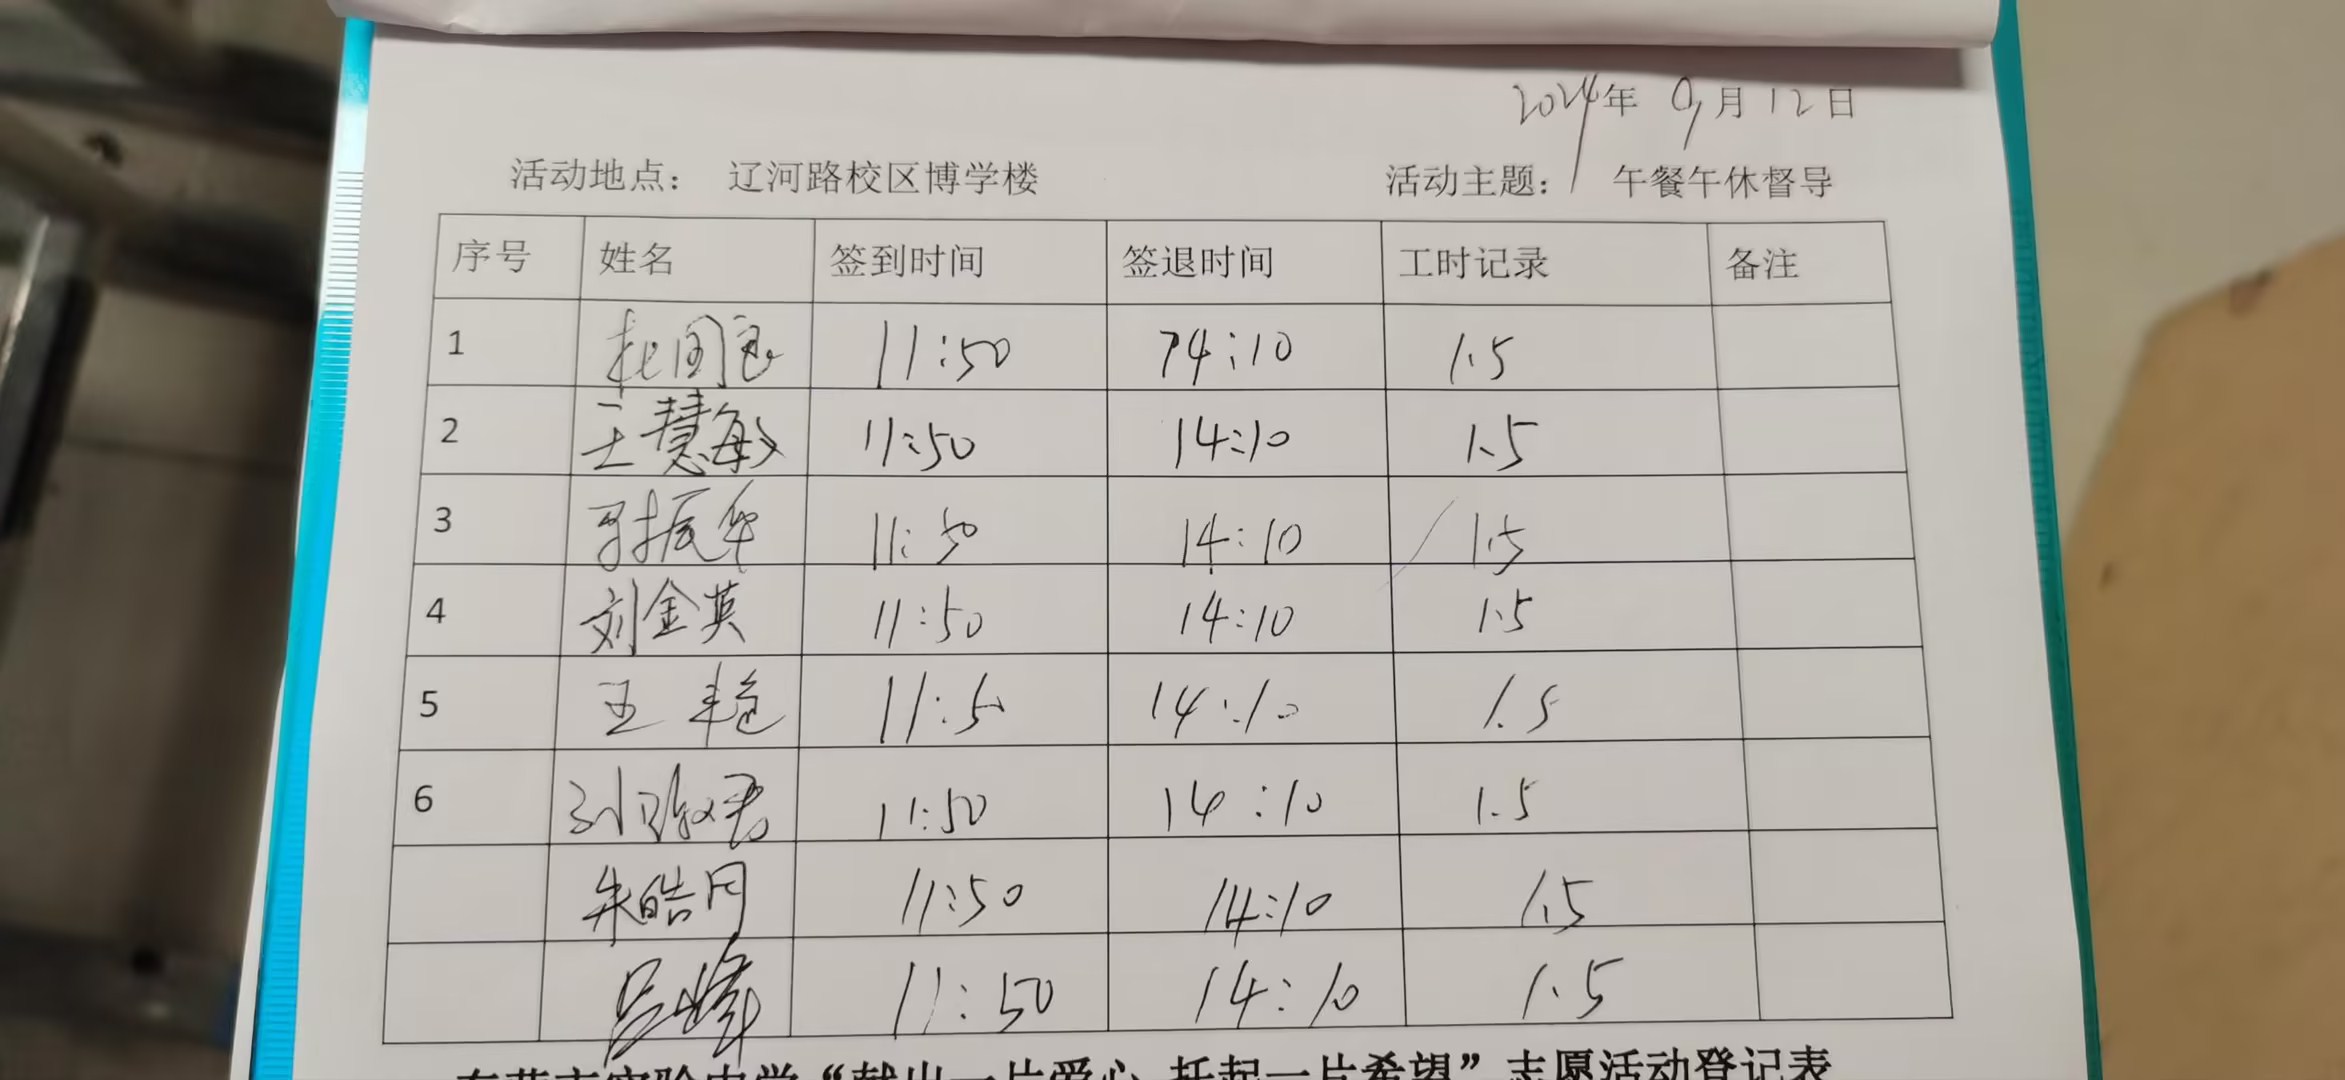 2024年 9月12日
活动地点： 辽河路校区博学楼 活动主题： 午餐午休督导
序号 姓名 签到时间 签退时间 工时记录 备注
1 11:50 14:10 1.5
2 王慧敏 11:50 14:10 1.5
3 11:50 14:10 1.5
4 刘金英 11:50 14:10 1.5
5 王 11:50 14:10 1.5
6 11:50 14:10 1.5
朱皓月 11:50 14:10 1.5
吕峰 11:50 14:10 1.5
“献出一片爱心 托起一片希望”志愿活动登记表